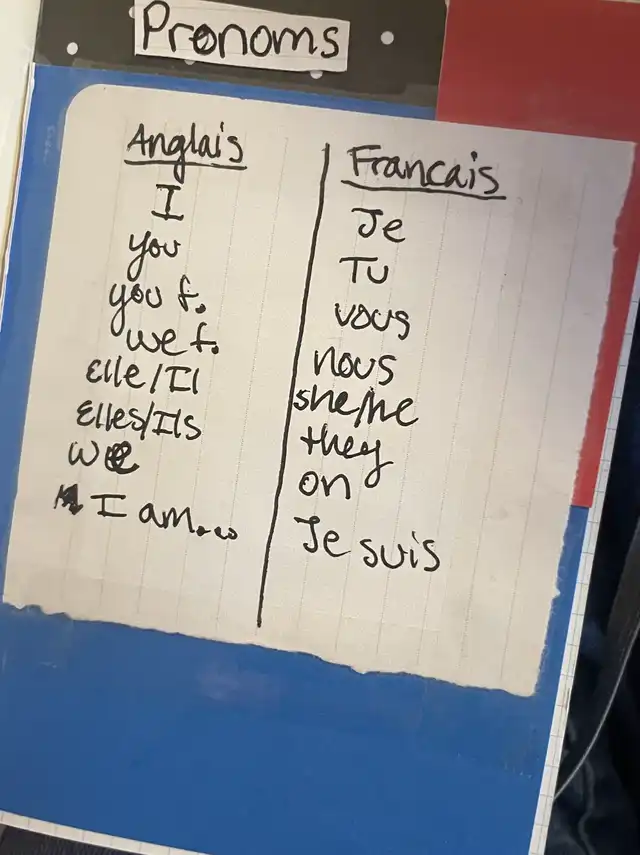 Pronoms
Anglais Francais
I Je
you Tu
you f. vous
we f. nous
Elle/Il she/he
Elles/Ils they
we on
I am... Je suis